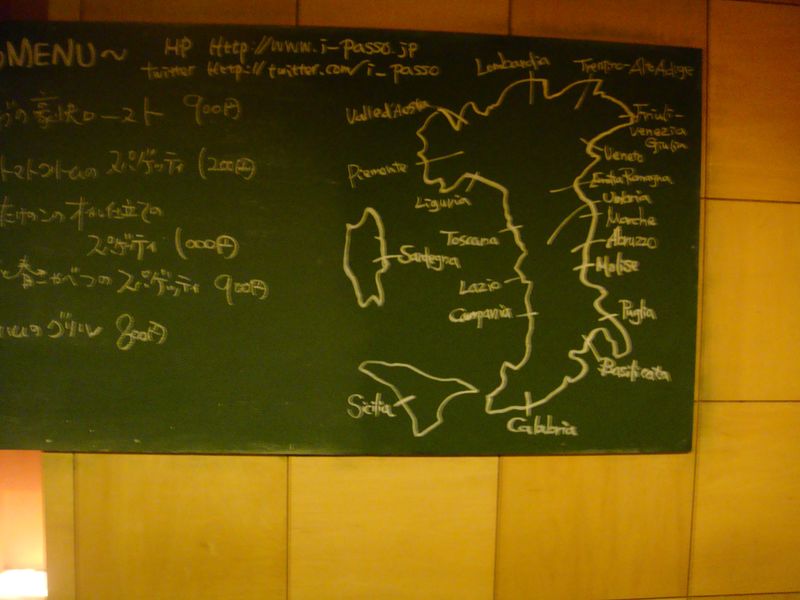 MENU～
HP Http://www.i-passo.jp
twitter Http://twitter.com/i_passo
ロースト 900円
スパゲッティ 1200円
たけのこの 仕立ての
スパゲティ 1000円
と春きゃべつのスパゲッティ 900円
のグリル 800円
Lombardia
Trentino-Alto Adige
Valled'Aosta
Friuli-
venezia
Giulia
Piemonte
Veneto
Emilia Romagna
Liguria
Umbria
Marche
Toscana
Abruzzo
Sardegna
Molise
Lazio
Campania
Puglia
Basilicata
Sicilia
Calabria